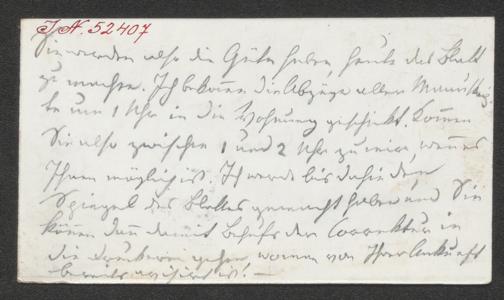 J.N. 52407
Sie werden also die Güte haben heute das Blatt
zu machen. Ich bekomme die Abzüge aller Manuskrip-
te um 1 Uhr in die Wohnung geschickt. Kommen
Sie also zwischen 1 und 2 Uhr zu mir, wenn es
Ihnen möglich ist. Ich werde bis dahin den
Spiegel des Blattes gemacht haben und Sie
können dann damit behufs der Correktur in
die Druckerei gehen, woman von Ihrer Ankunft
bereits avisirt ist! —